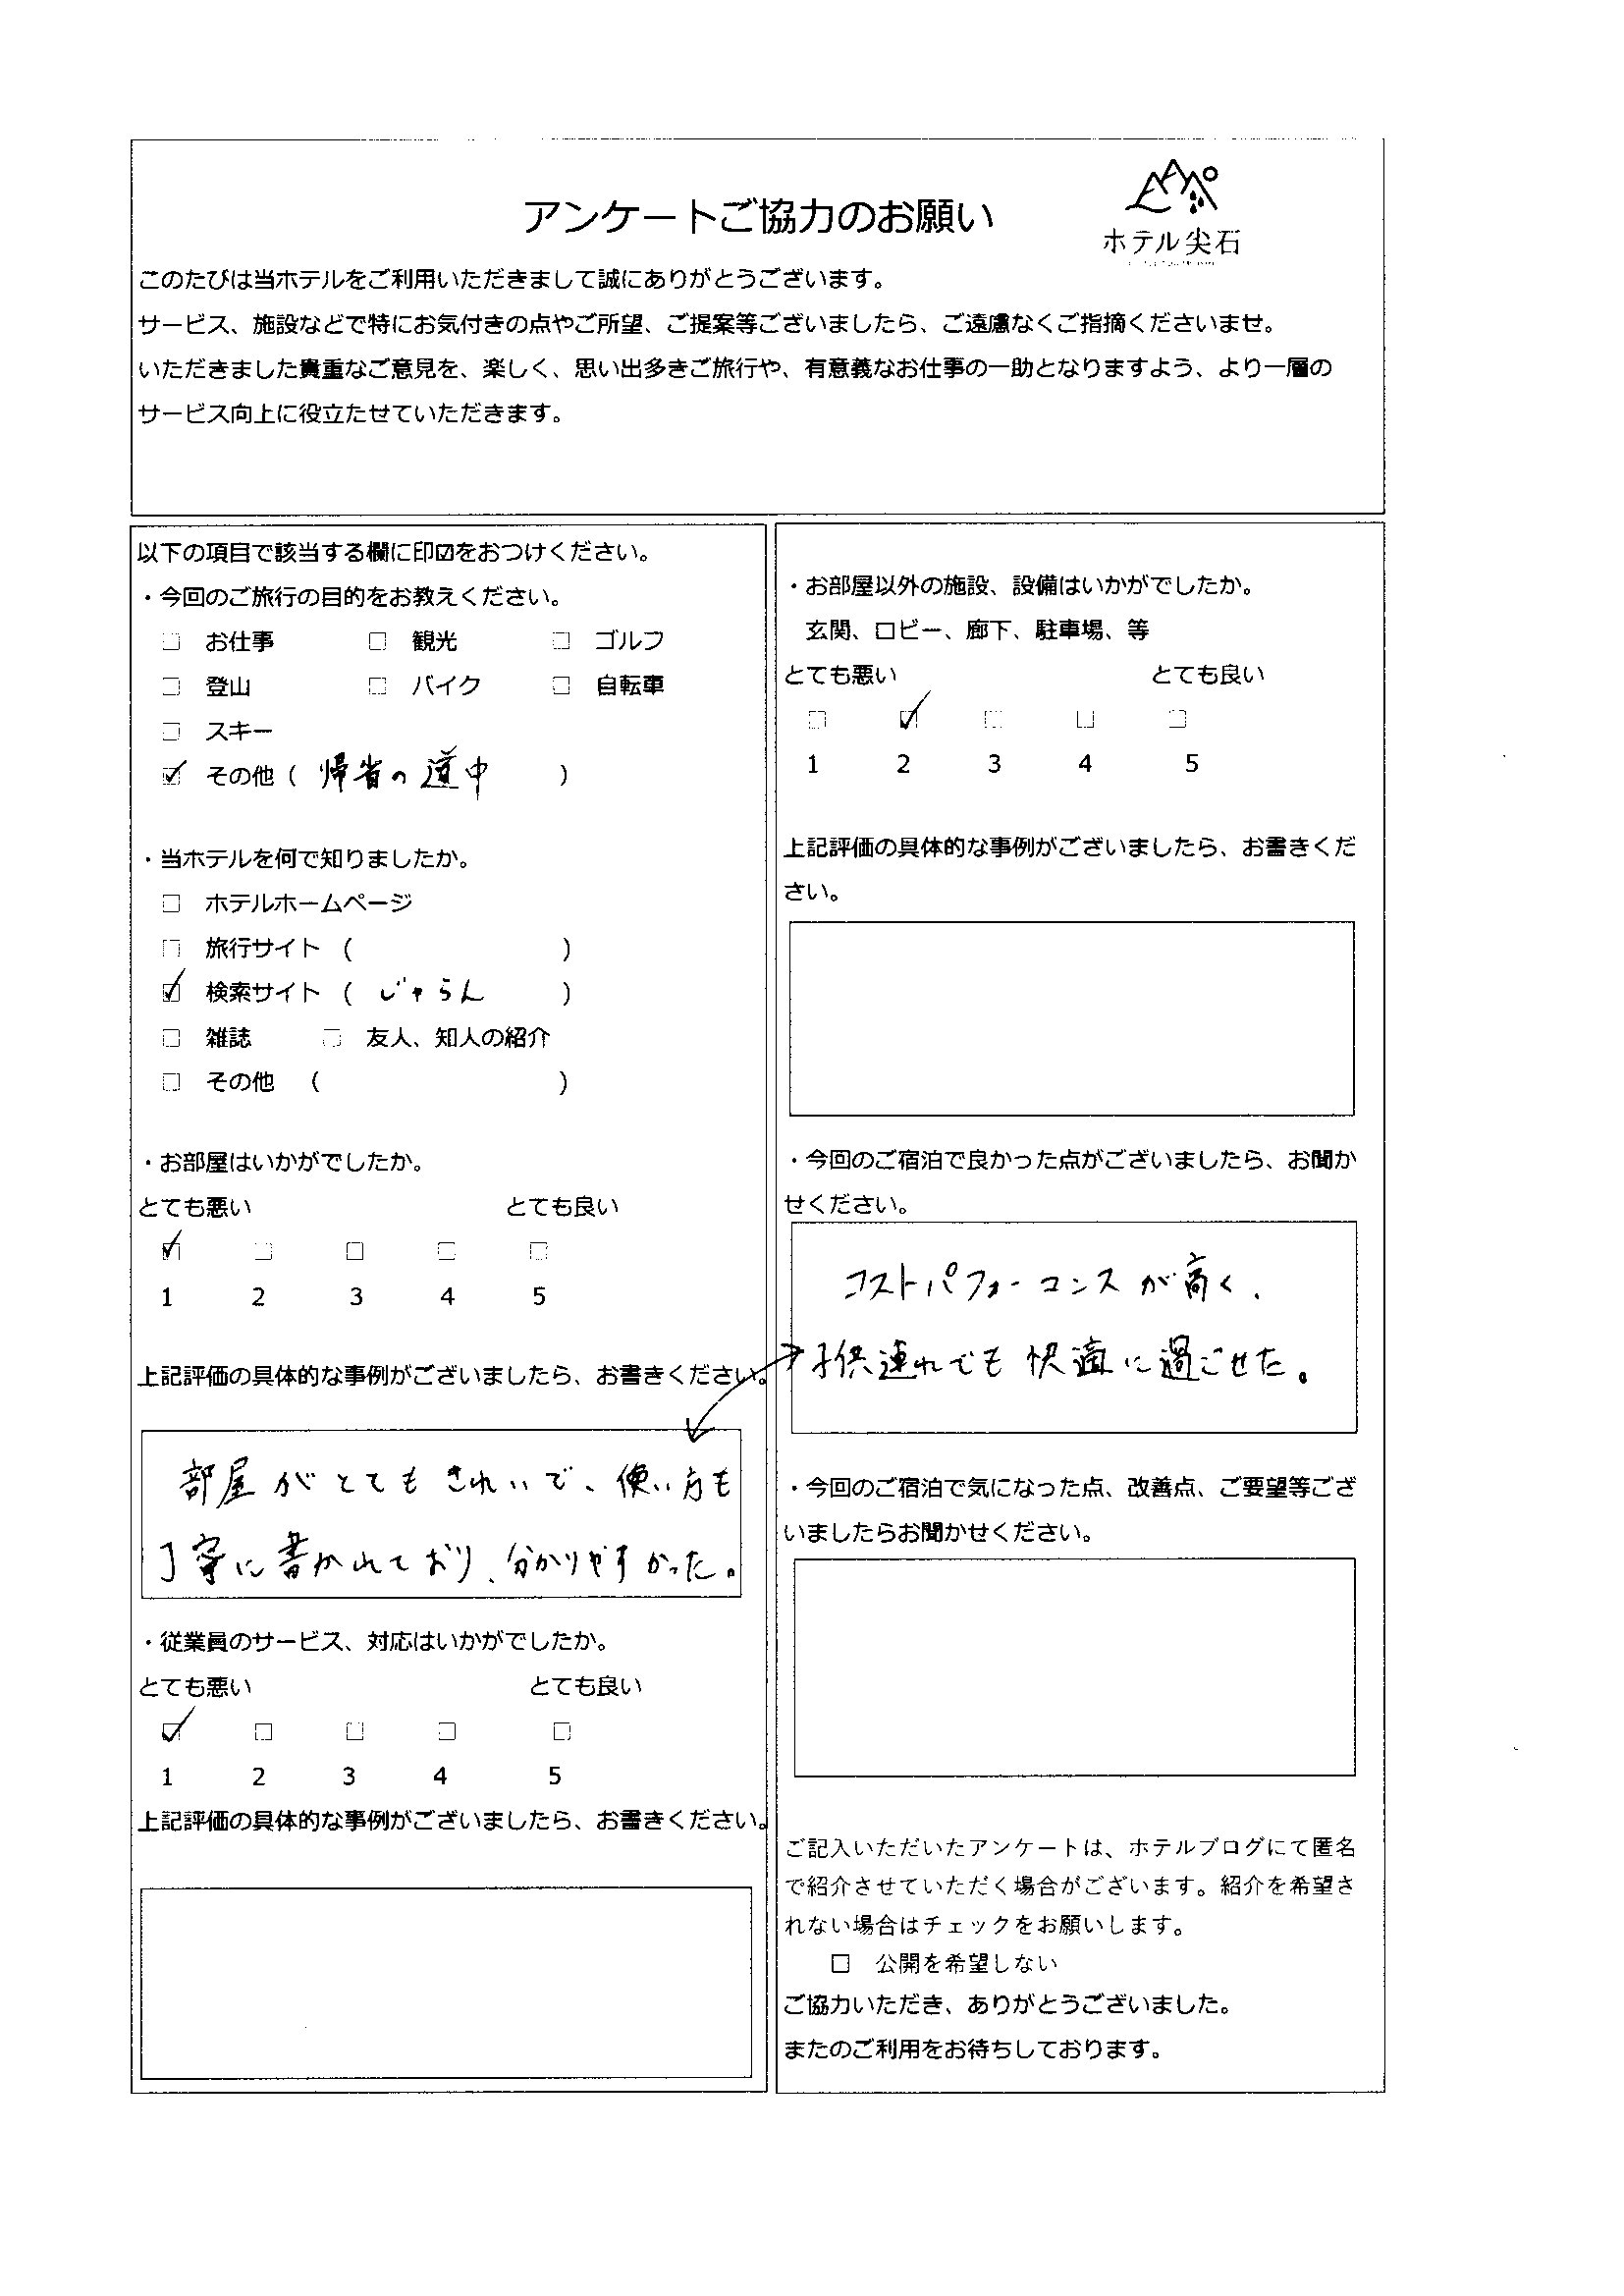 アンケートご協力のお願い
ホテル 尖石
このたびは当ホテルをご利用いただきまして誠にありがとうございます。
サービス、施設などで特にお気付きの点やご所望、ご提案等ございましたら、ご遠慮なくご指摘くださいませ。
いただきました貴重なご意見を、楽しく、思い出多きご旅行や、有意義なお仕事の一助となりますよう、より一層の
サービス向上に役立たせていただきます。
以下の項目で該当する欄に印☑をおつけください。
・今回のご旅行の目的をお教えください。
☐ お仕事 ☐ 観光 ☐ ゴルフ
☐ 登山 ☐ バイク ☐ 自転車
☐ スキー
☑ その他 ( 帰省の道中 )
・当ホテルを何で知りましたか。
☐ ホテルホームページ
☐ 旅行サイト ( )
☑ 検索サイト ( じゃらん )
☐ 雑誌 ☐ 友人、知人の紹介
☐ その他 ( )
・お部屋はいかがでしたか。
とても悪い とても良い
☑ ☐ ☐ ☐ ☐
1 2 3 4 5
上記評価の具体的な事例がございましたら、お書きください。
部屋がとてもきれいで、使い方も
丁寧に書かれており、分かりやすかった。
・従業員のサービス、対応はいかがでしたか。
とても悪い とても良い
☑ ☐ ☐ ☐ ☐
1 2 3 4 5
上記評価の具体的な事例がございましたら、お書きください。
・お部屋以外の施設、設備はいかがでしたか。
玄関、ロビー、廊下、駐車場、等
とても悪い とても良い
☐ ☑ ☐ ☐ ☐
1 2 3 4 5
上記評価の具体的な事例がございましたら、お書きくだ
さい。
・今回のご宿泊で良かった点がございましたら、お聞か
せください。
コストパフォーマンスが高く、
子供連れでも快適に過ごせた。
・今回のご宿泊で気になった点、改善点、ご要望等ござ
いましたらお聞かせください。
ご記入いただいたアンケートは、ホテルブログにて匿名
で紹介させていただく場合がございます。紹介を希望さ
れない場合はチェックをお願いします。
☐ 公開を希望しない
ご協力いただき、ありがとうございました。
またのご利用をお待ちしております。